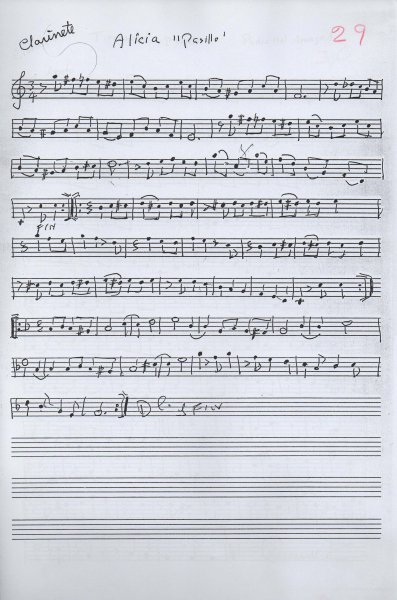 Clarinete
Alicia "Pasillo"
29
3
4
FIN
D FIN